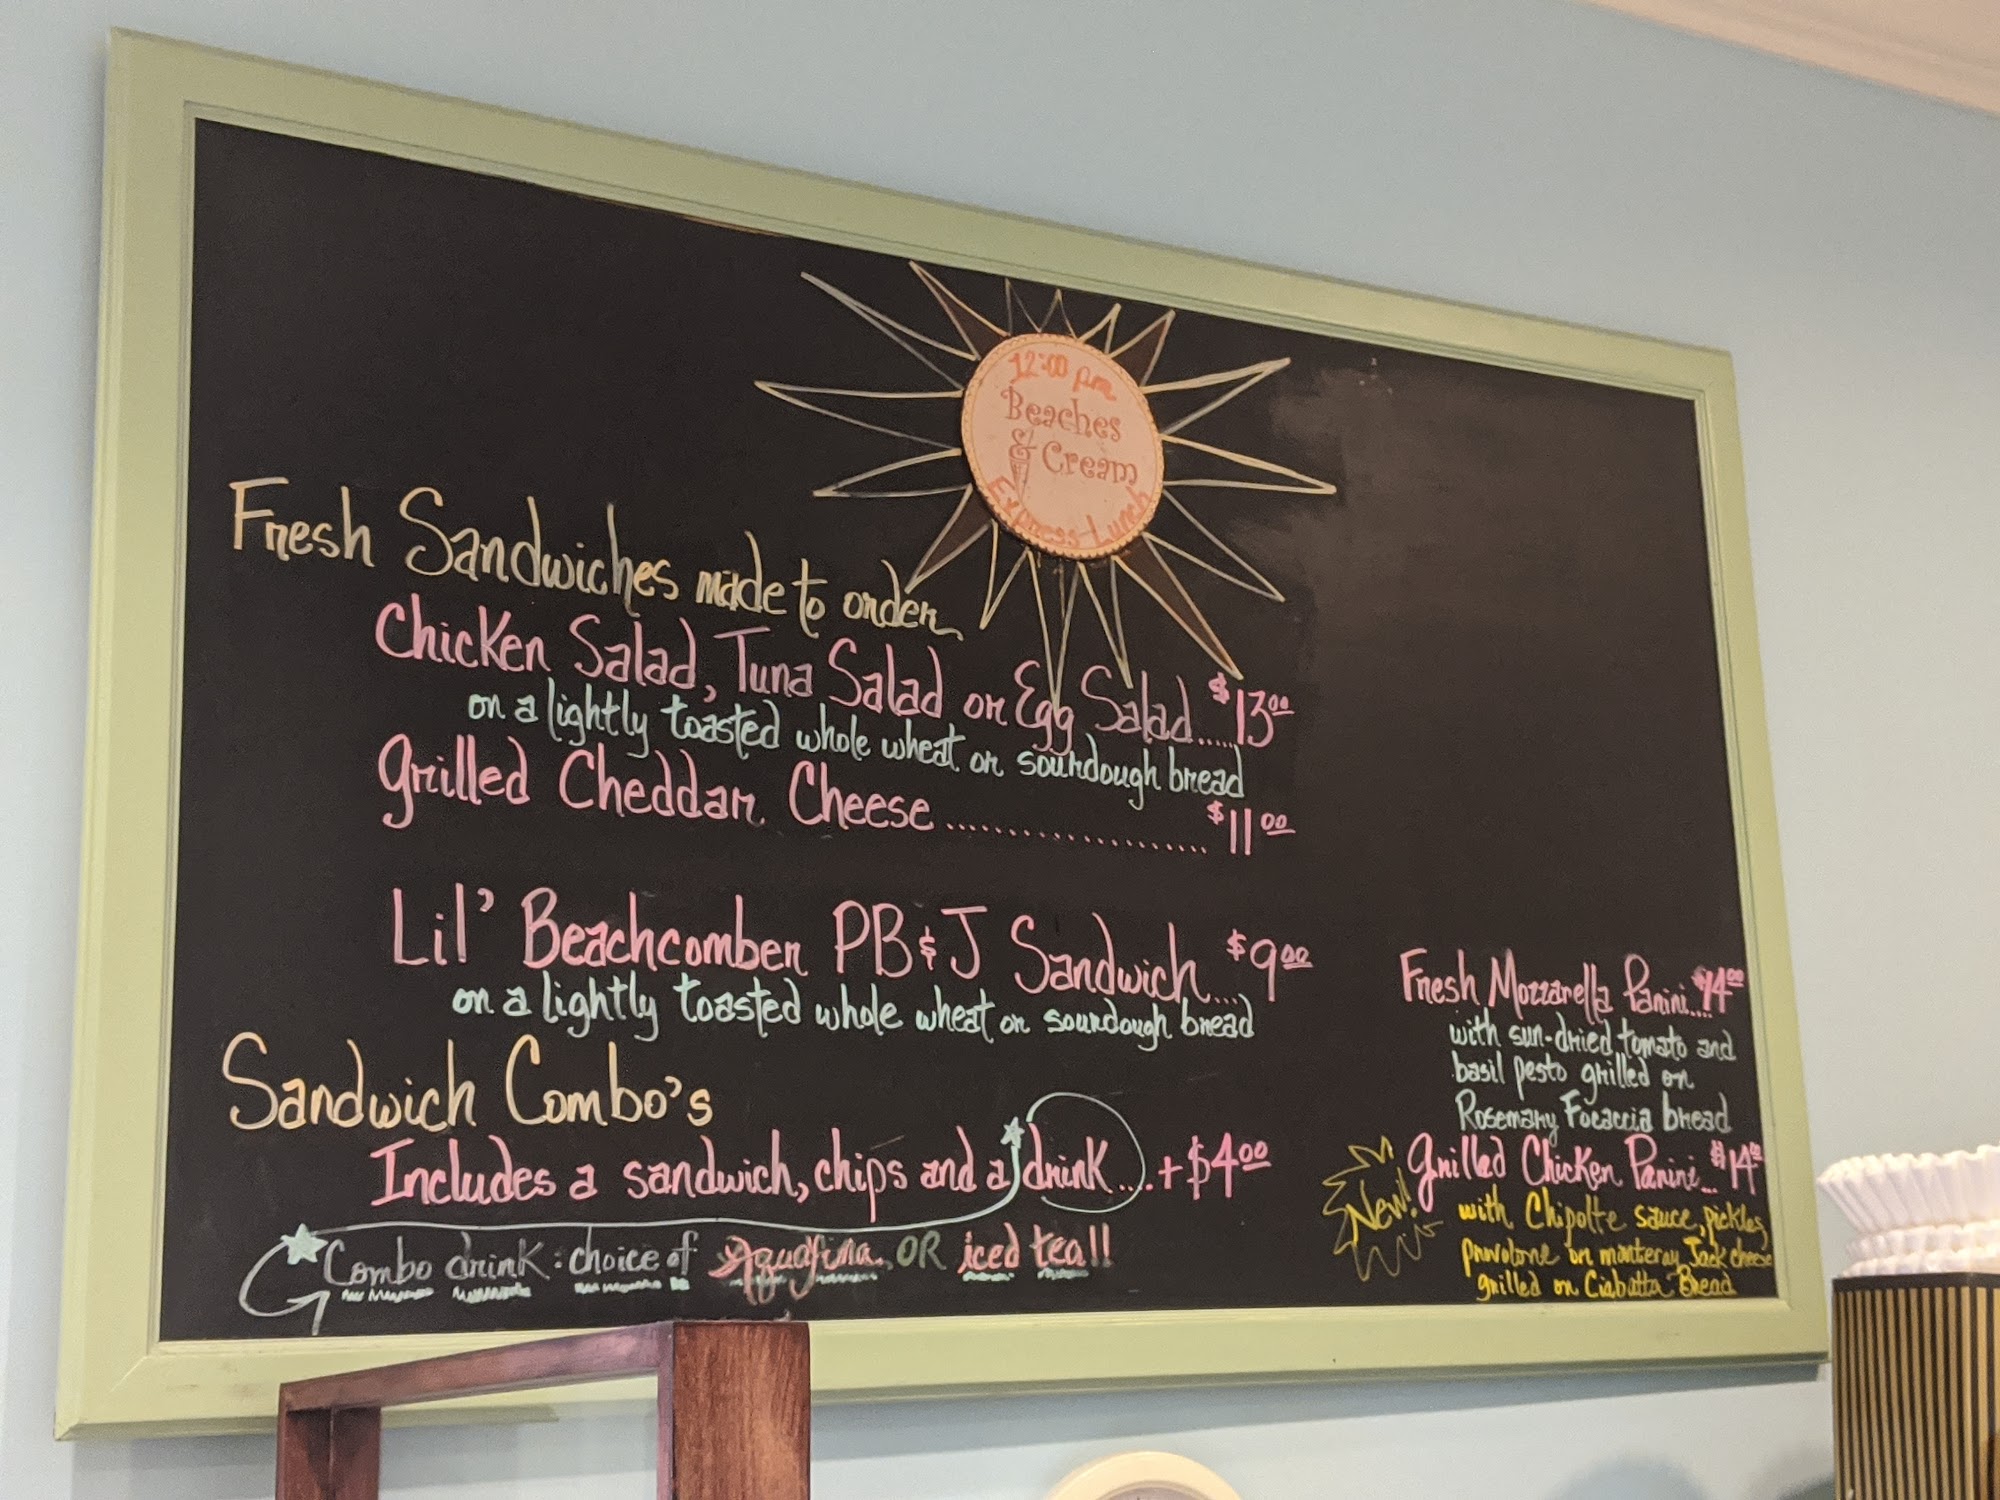 12:00 pm
Beaches
& Cream
Express Lunch
Fresh Sandwiches made to order
Chicken Salad, Tuna Salad or Egg Salad..... $13.00
on a lightly toasted whole wheat or sourdough bread
Grilled Cheddar Cheese.................... $11.00
Lil' Beachcomber PB&J Sandwich... $9.00
on a lightly toasted whole wheat or sourdough bread
Sandwich Combo's
Includes a sandwich, chips and a drink.... + $4.00
Combo drink: choice of Aquafina OR iced tea!!
Fresh Mozzarella Panini.... $14.00
with sun-dried tomato and
basil pesto grilled on
Rosemary Focaccia bread
New!
Grilled Chicken Panini... $14.00
with Chipolte sauce, pickles,
provolone or monteray Jack cheese
grilled on Ciabatta Bread